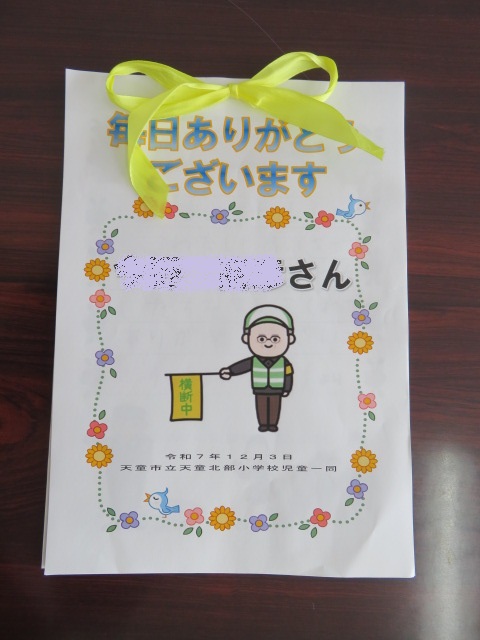 毎日ありがとう
ございます
さん
横断中
令和7年12月3日
天童市立天童北部小学校児童一同